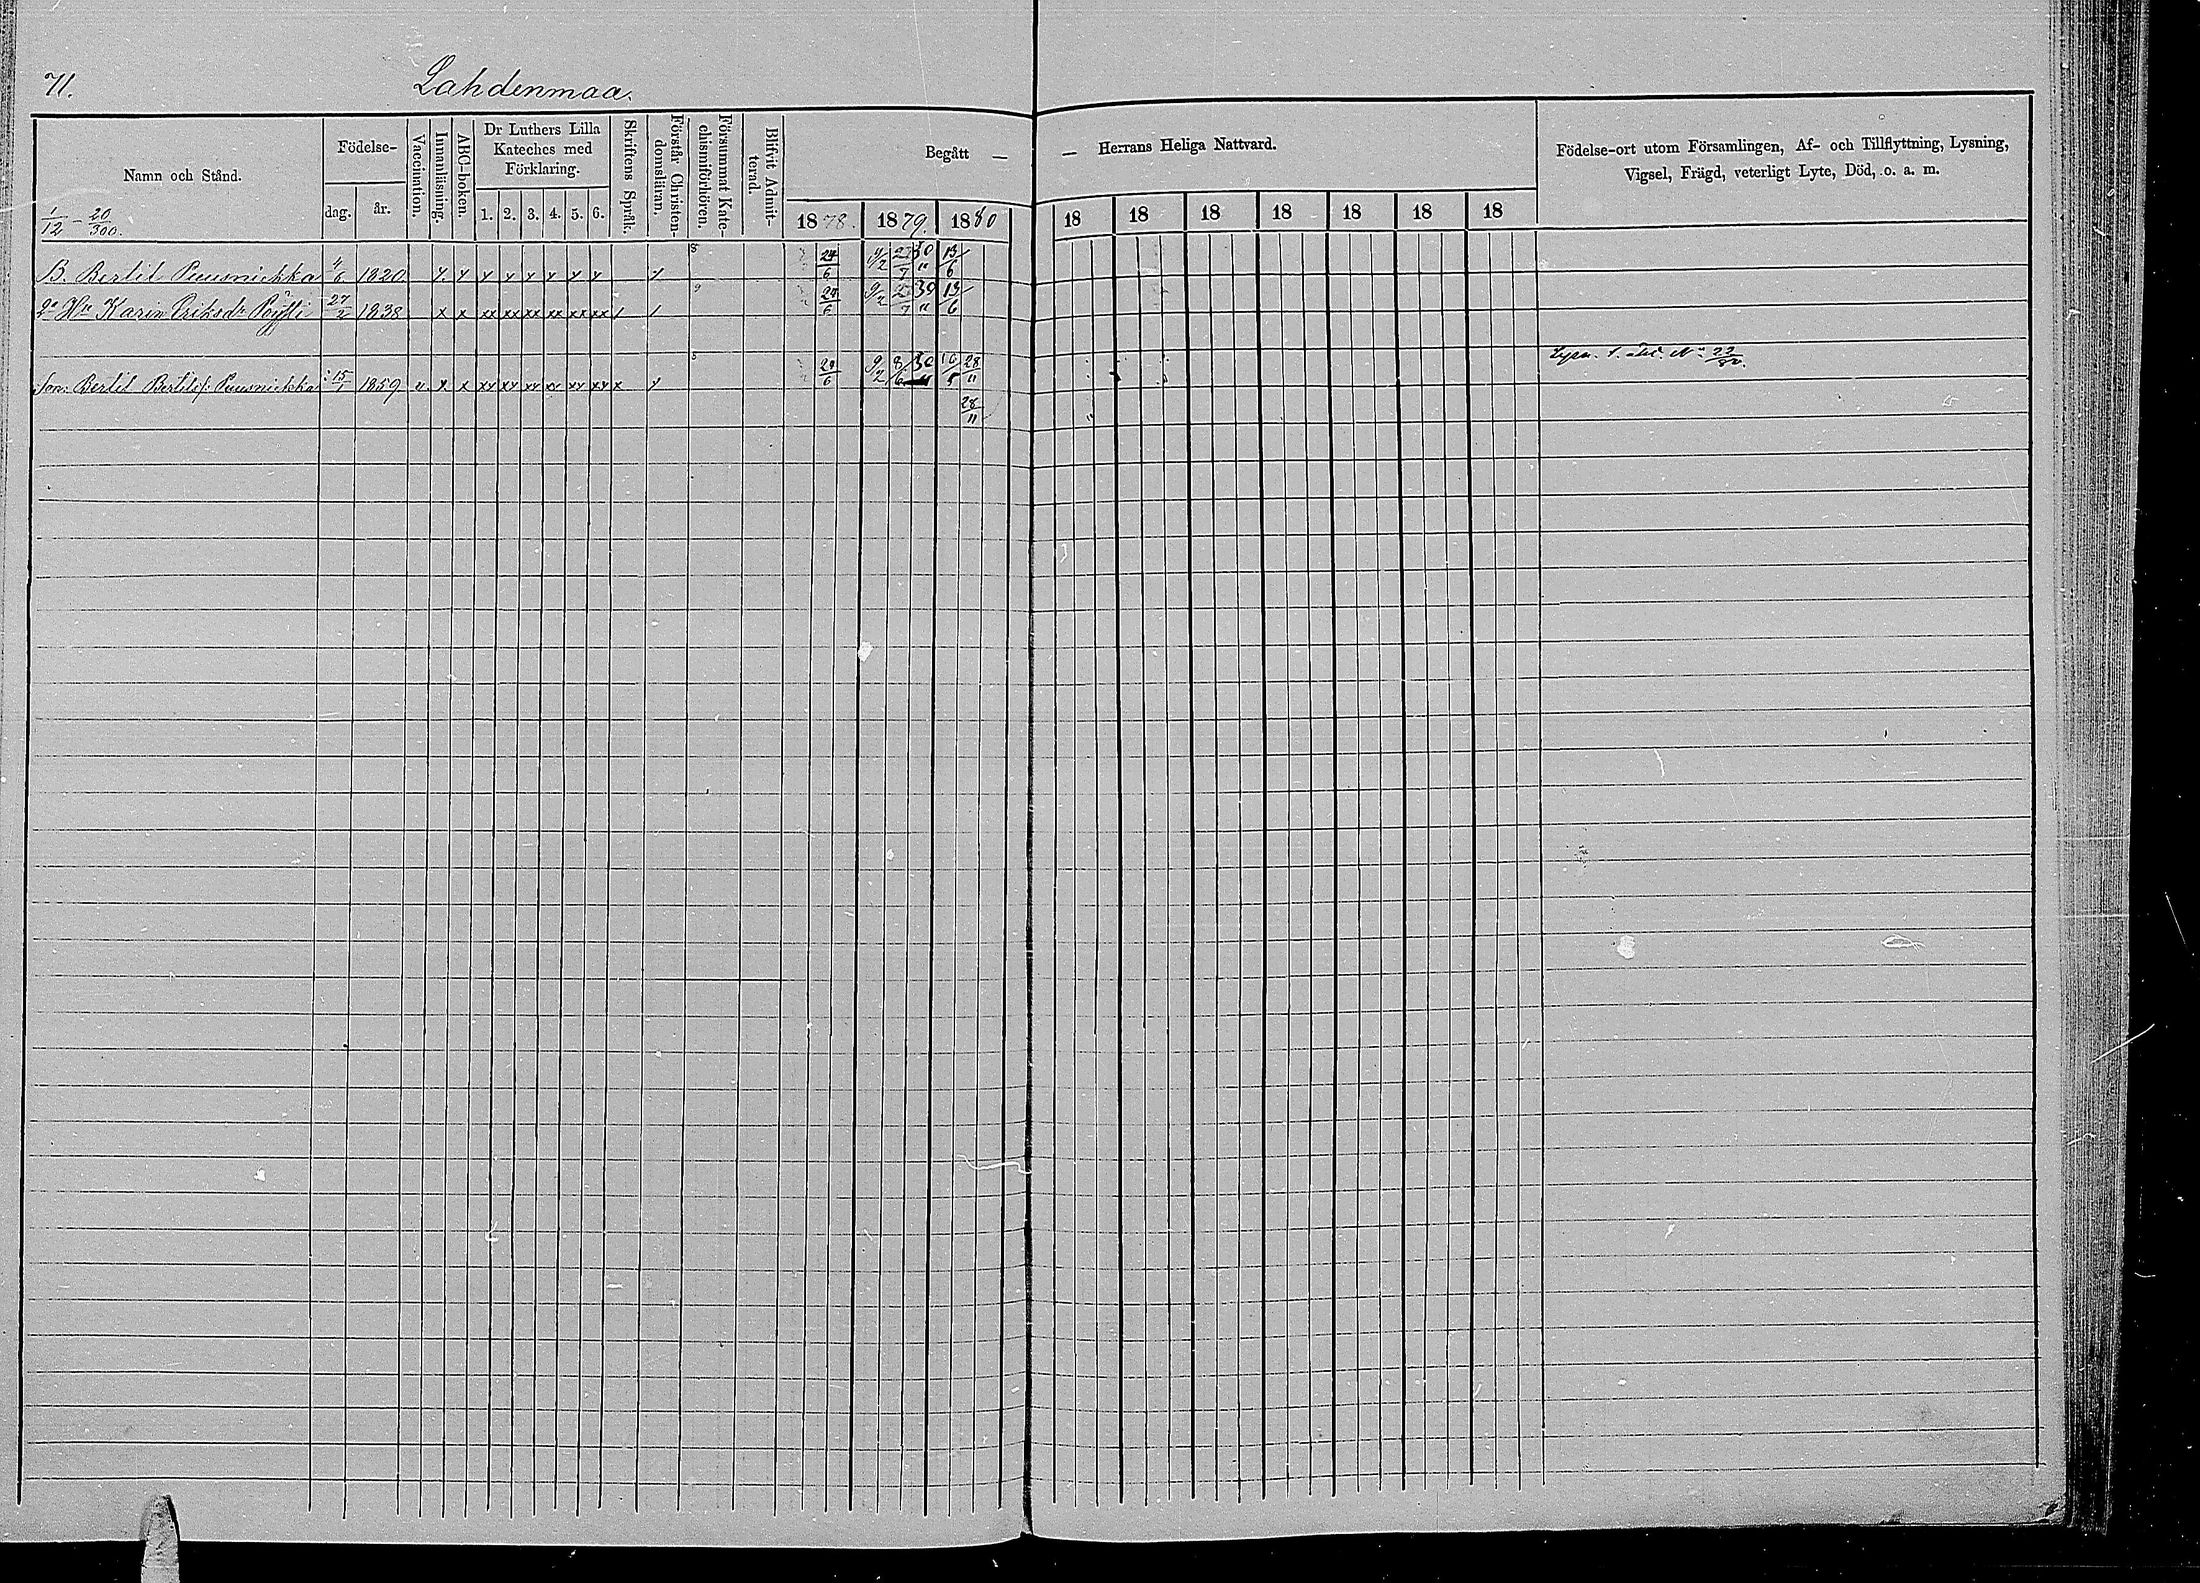 71.
Lahdenmaa.
Namn och Stånd.
1/12 - 20/300.
Födelse-
dag. år.
Vaccination.
Innanläsning.
ABC-boken.
Dr Luthers Lilla
Kateches med
Förklaring.
1. 2. 3. 4. 5. 6.
Skriftens Språk.
Förstår Christen-
domsläran.
Försummat Kate-
chismiförhören.
Blifvit Admit-
terad.
Begått —
1878. 1879. 1880
— Herrans Heliga Nattvard.
18 18 18 18 18 18 18
Födelse-ort utom Församlingen, Af- och Tillflyttning, Lysning,
Vigsel, Frägd, veterligt Lyte, Död, o. a. m.
B. Bertil Puusniekka 4/6 1820 x x x x x x x x x 24/6 9/2 30/" 13/6
2a Hu Karin Eriksdr Pöysti 27/2 1838 x x xx xx xx xx xx xx / / 24/6 9/2 30/" 13/6
Son: Bertil Bertilsf. Puusniekka 15/1 1859 v. x x xx xx xx xx xx xx x x 24/6 9/2 8/6 30 28/11
28/11
Lysn. 1. N: